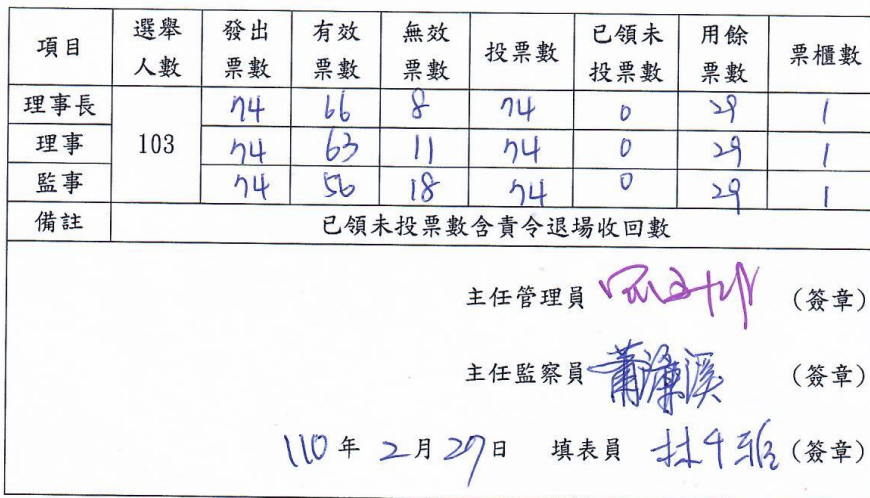 項目 選舉人數 發出票數 有效票數 無效票數 投票數 已領未投票數 用餘票數 票櫃數
理事長 103 74 66 8 74 0 29 1
理事 74 63 11 74 0 29 1
監事 74 56 18 74 0 29 1
備註 已領未投票數含責令退場收回數
主任管理員 (簽章)
主任監察員 蕭濂溪 (簽章)
110年2月27日 填表員 (簽章)